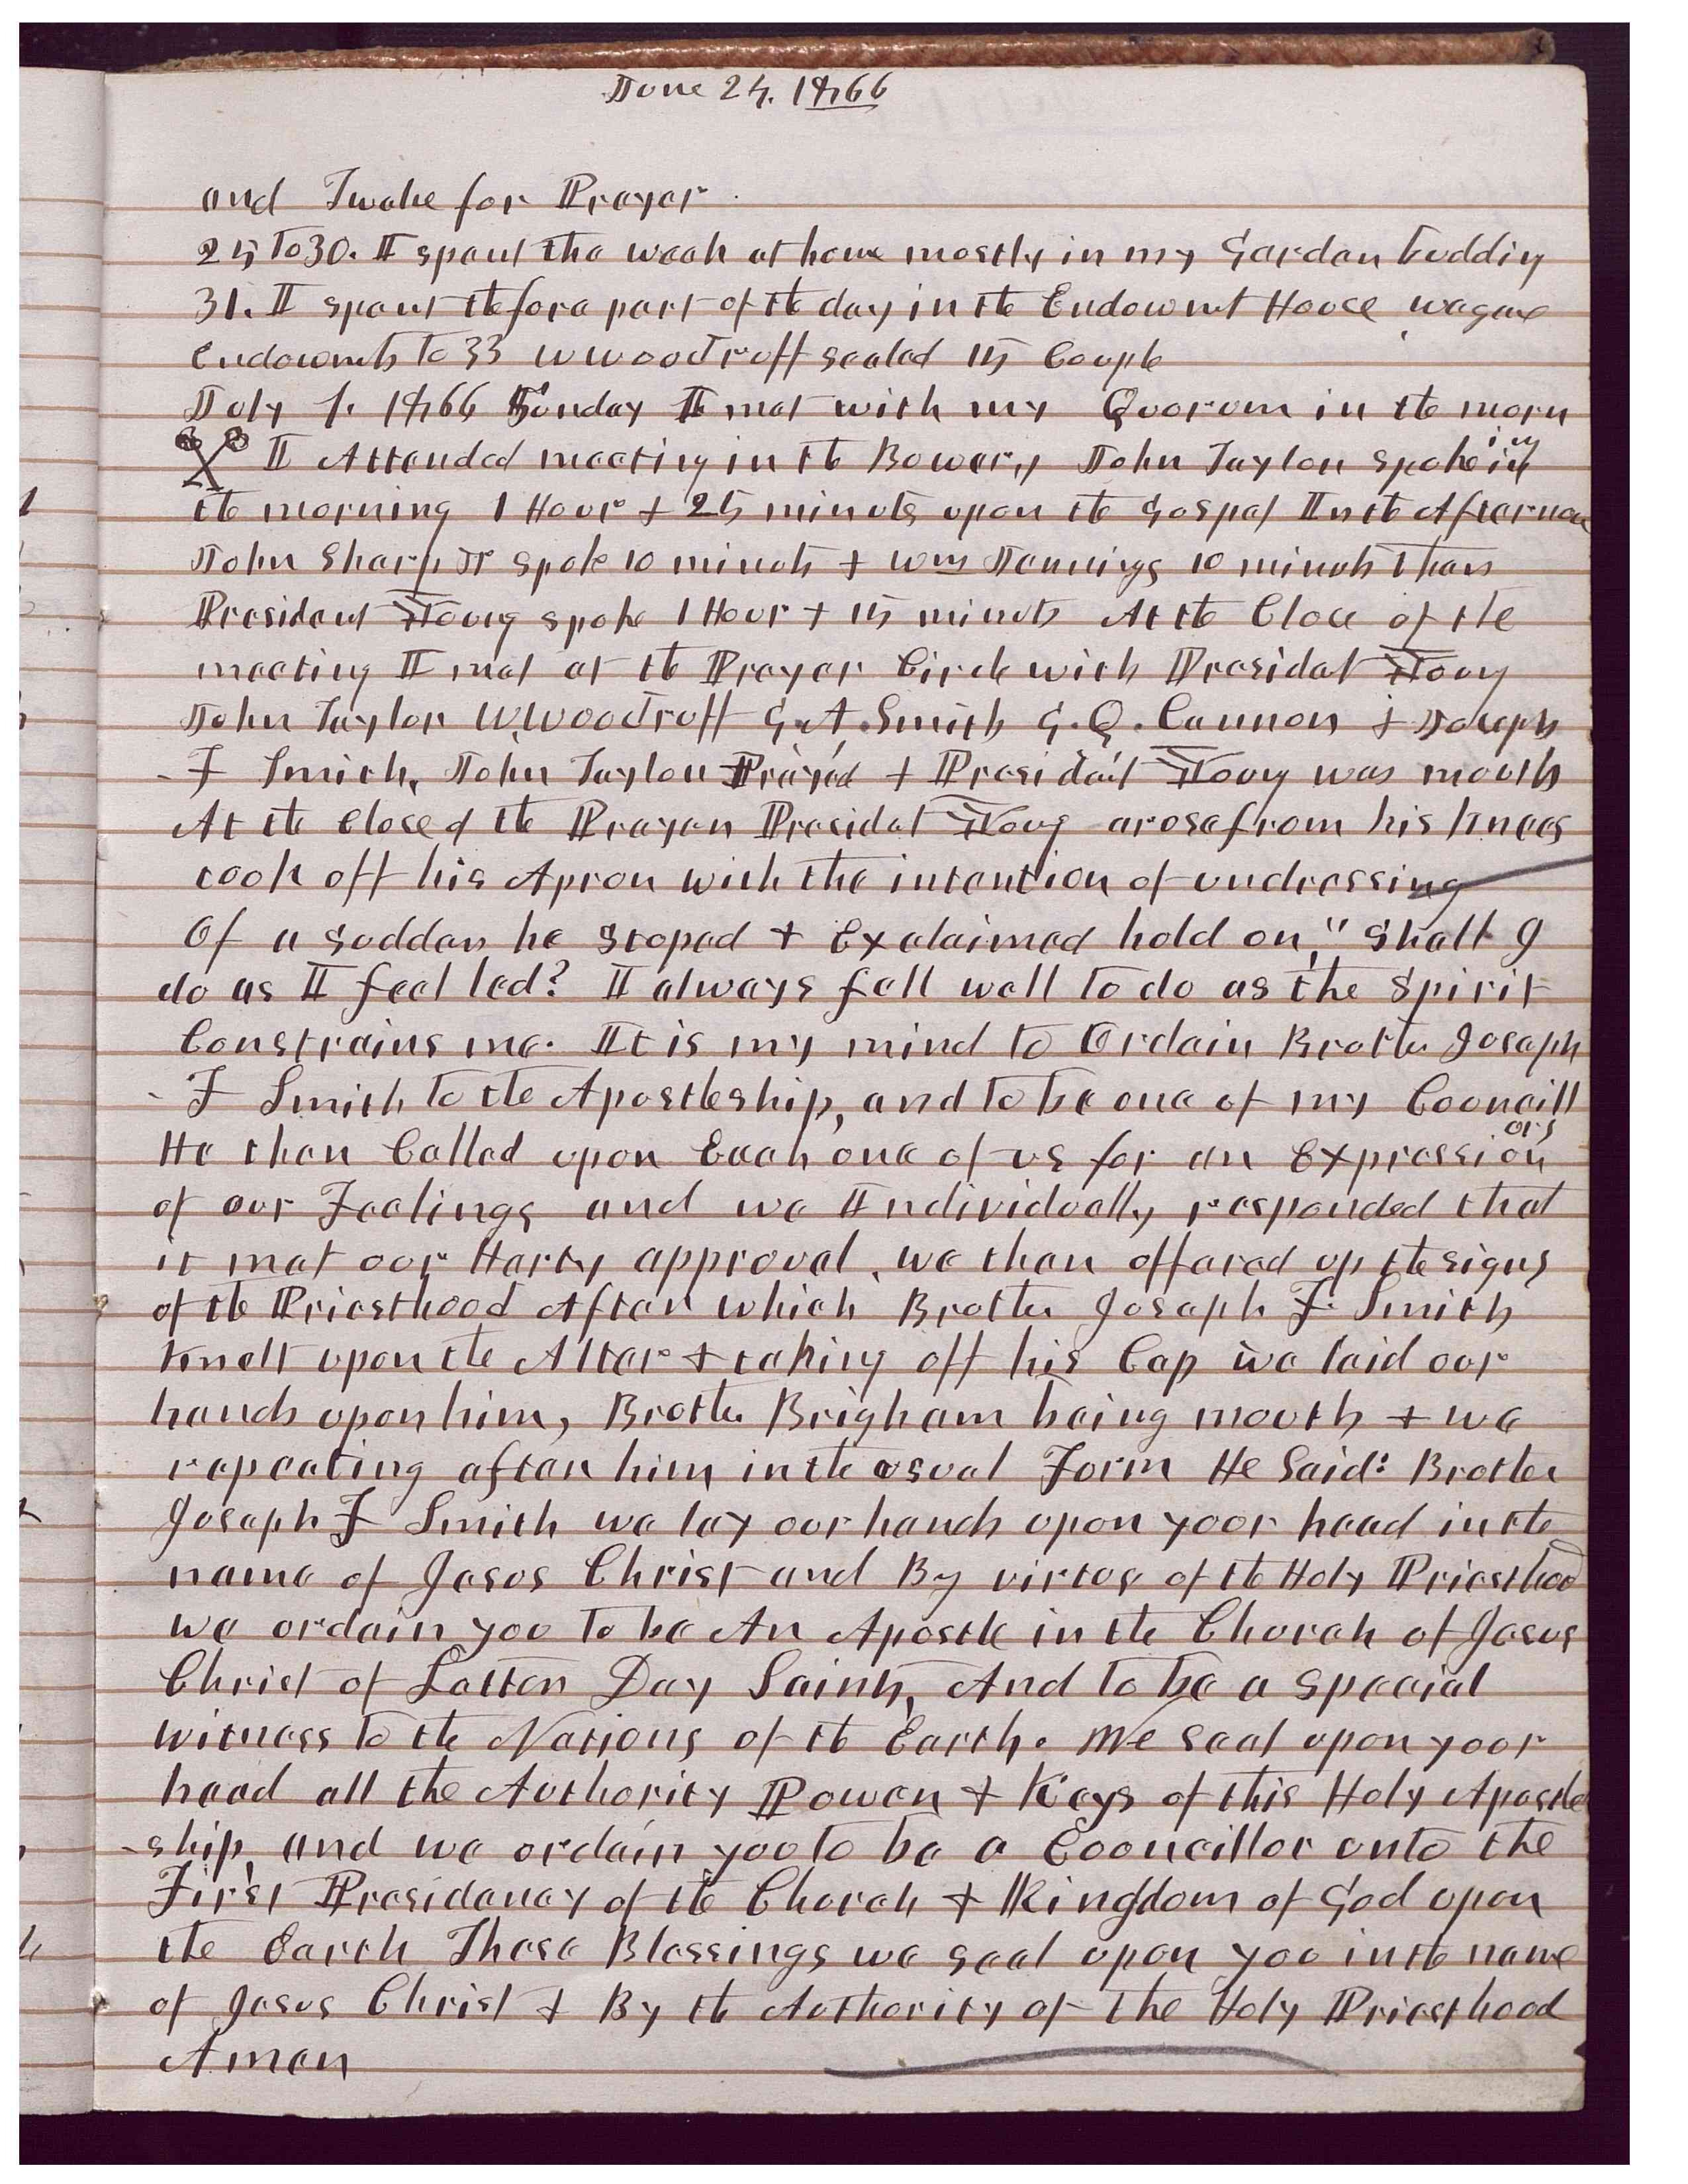 June 24. 1866
and Twelve for Prayer
25 To 30. I spent the week at home mostly in my Garden budding
31. I spent the fore part of the day in the Endowmt House we gave
Endowmts to 33 W Woodruff sealed 15 Couple
July 1. 1866 Sunday I met with my Quorum in the morn
I Attended meeting in the Bowery John Taylor spoke in
the morning 1 Hour & 25 minuts upon the Gospel In the Afternoon
John Sharp Jr spoke 10 minuts & Wm Jennings 10 minuts Then
President Young spoke 1 Hour & 15 minuts At the Close of the
meeting I met at the Prayer Circle with Presidet Young
John Taylor W. Woodruff G. A. Smith G. Q. Cannon & Joseph
- F Smith. John Taylor Prayed & President Young was mouth
At the Close of the Prayer Presidet Young arose from his knees
took off his Apron with the intention of undressing
Of a sudden he stoped & Exclaimed hold on, "Shall I
do as I feel led? I always fell well to do as the Spirit
Constrains me. It is my mind to Ordain Brother Joseph
- F Smith to the Apostleship, and to be one of my Councill
ors
He then Called upon Each one of us for an Expression
of our Feelings and we Individually responded that
it met our Harty approval. we then offered up the signs
of the Priesthood After which Brother Joseph F. Smith
Knelt upon the Altar & taking off his Cap we laid our
hands upon him, Brother Brigham being mouth & we
repeating after him in the usual Form He Said: Brother
Joseph F Smith we lay our hands upon your head in the
name of Jesus Christ and By virtue of the Holy Priesthood
we ordain you to be An Apostle in the Church of Jesus
Christ of Latter Day Saints, And to be a special
witness to the Nations of the Earth. We seal upon your
head all the Authority Power & Keys of this Holy Apostle
-ship, and we ordain you to be a Councillor unto the
First Presidency of the Church & Kingdom of God upon
the Earth These Blessings we seal upon you in the name
of Jesus Christ & By the Authority of the Holy Priesthood
Amen